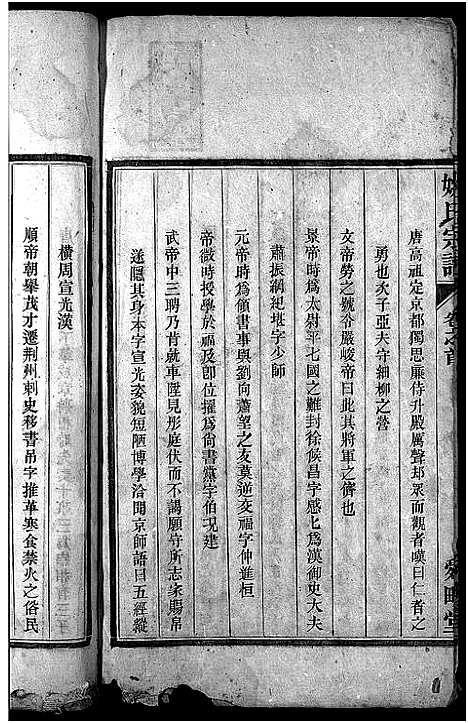 氏宗譜
卷之首
唐高祖定京都獨思廉侍升殿厲聲却眾而觀者嘆曰仁者之
勇也次子亞夫守細柳之營
文帝勞之號令嚴峻帝曰此真將軍之儕也
景帝時爲太尉平七國之難封徐候昌字感七爲漢御史大夫
肅振綱紀堪字少師
元帝時爲領書事與劉向蕭望之友莫逆交福字仲進桓
帝微時授學於福及卽位擢爲尙書黨字伯况建
武帝中三聘乃肯就車陛見彤庭伏而不謁願守所志家賜帛
遂隱其身本字宣光姿貌短陋博學洽聞京師語曰五經縱
橫周宣光漢
順帝朝舉茂才遷荆州刺史移書吊字推革寒食禁火之俗民